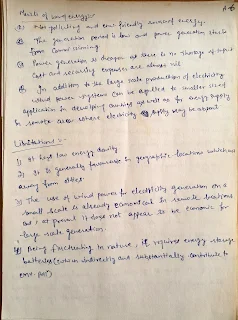 Merits of wind energy:-
A-6
① Non polluting and env. friendly source of energy.
② The gestation period is low and power generation starts
from commissioning
③ Power generation is cheaper as there is no shortage of input
cost and recurring expenses are almost nil
④ In addition to the large scale production of electricity
wind power systems can be applied to smaller scale
application in developing countries as well as for energy supply
in remote area where electricity supply may be absent
Limitations :-
1) It has low energy density
2) It is generally favourable in geographic locations which are
away from cities.
3) The use of wind power for electricity generation on a
small scale is already economical in remote locations
but, at present it does not appear to be economic for
large scale generation.
4) Being fluctuating in nature, it requires energy storage
batteries (which indirectly and substantially contribute to
env. pol)